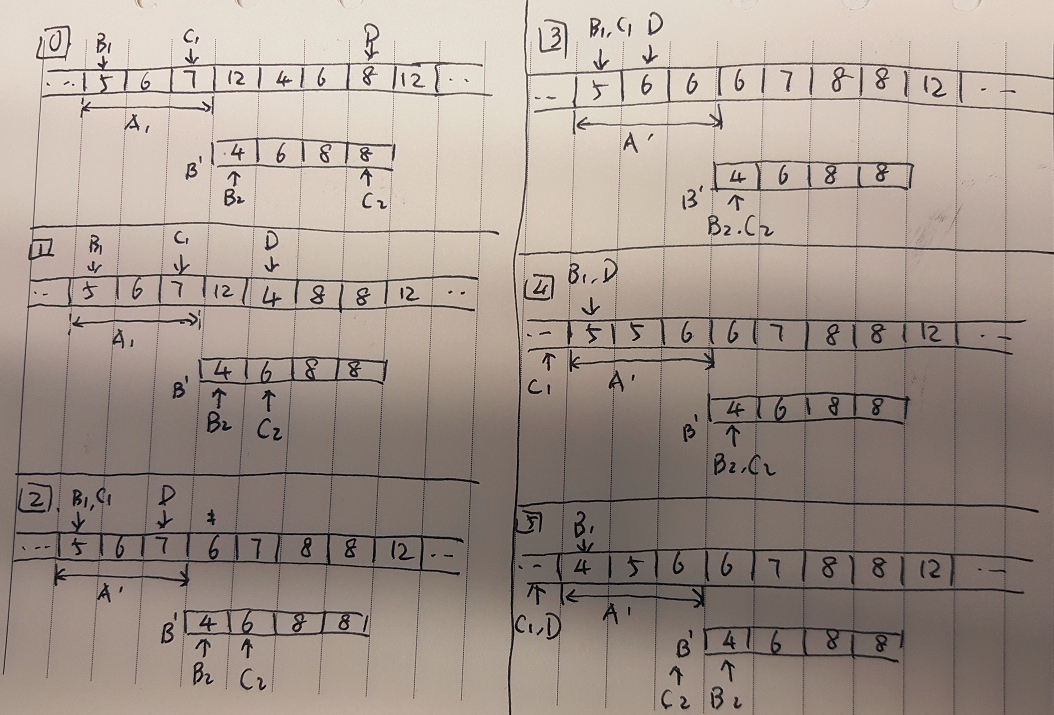 0
B₁ C₁ D
·· 5 6 7 12 4 6 8 12 ··
A₁
B' 4 6 8 8
B₂ C₂
1
B₁ C₁ D
·· 5 6 7 12 4 8 8 12 ··
A₁
B' 4 6 8 8
B₂ C₂
2
B₁,C₁ D *
··· 5 6 7 6 7 8 8 12 ··
A'
B' 4 6 8 8
B₂ C₂
3
B₁,C₁ D
·· 5 6 6 6 7 8 8 12 ··
A'
B' 4 6 8 8
B₂.C₂
4
B₁,D
·· 5 5 6 6 7 8 8 12 ··
C₁ A'
B' 4 6 8 8
B₂.C₂
5
B₁
·· 4 5 6 6 7 8 8 12 ··
C₁,D A'
B' 4 6 8 8
C₂ B₂